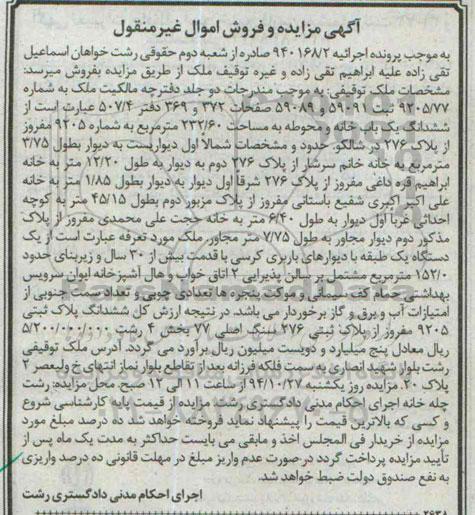 آگهی مزایده و فروش اموال غیرمنقول
به موجب پرونده اجرائیه ۹۴۰۱۶۸/۲ صادره از شعبه دوم حقوقی رشت خواهان اسماعیل
تقی زاده علیه ابراهیم تقی زاده و غیره توقیف ملک از طریق مزایده بفروش میرسد:
مشخصات ملک توقیفی: به موجب مندرجات دو جلد دفترچه مالکیت ملک به شماره
۹۲۰۵/۷۷ ثبت ۵۹۰۹۱ و ۵۹۰۸۹ صفحات ۳۷۲ و ۳۶۹ دفتر ۵۰۷/۴ عبارت است از
ششدانگ یک باب خانه و محوطه به مساحت ۲۳۲/۶۰ مترمربع به شماره ۹۲۰۵ مفروز
از پلاک ۲۷۶ در شالکو. حدود و مشخصات شمالا اول دیواریست به دیوار بطول ۳/۷۵
مترمربع به خانه خانم سرشار از پلاک ۲۷۶ دوم به دیوار به طول ۱۲/۲۰ متر به خانه
ابراهیم قره داغی مفروز از پلاک ۲۷۶ شرقا اول دیوار به دیوار بطول ۱/۸۵ متر به خانه
علی اکبر اکبری شفیع باستانی مفروز از پلاک مزبور دوم بطول ۴۵/۱۵ متر به کوچه
احداثی غربا اول دیوار به طول ۶/۴۰ متر به خانه حجت علی محمدی مفروز از پلاک
مذکور دوم دیوار مجاور به طول ۷/۷۵ متر مجاور. ملک مورد تعرفه عبارت است از یک
دستگاه یک طبقه با دیوارهای باربری کرسی با قدمت بیش از ۳۰ سال و زیربنای حدود
۱۵۲/۰ مترمربع مشتمل بر سالن پذیرایی ۲ اتاق خواب و هال آشپزخانه ایوان سرویس
بهداشتی حمام کف سیمانی و موکت پنجره ها تعدادی چوبی و تعداد سمت جنوبی از
امتیازات آب و برق و گاز برخوردار می باشد. در نتیجه ارزش کل ششدانگ پلاک ثبتی
۹۲۰۵ مفروز از پلاک ثبتی ۲۷۶ سنگ اصلی ۷۷ بخش ۴ رشت ۵/۲۰۰/۰۰۰/۰۰۰
ریال معادل پنج میلیارد و دویست میلیون ریال برآورد می گردد. آدرس ملک توقیفی
رشت بلوار شهید انصاری به سمت فلکه فرزانه بعد از تقاطع بلوار نماز انتهای خ ولیعصر ۲
پلاک ۲۰. مزایده روز یکشنبه ۹۴/۱۰/۲۷ از ساعت ۱۱ الی ۱۲ صبح. محل مزایده: رشت
چله خانه اجرای احکام مدنی دادگستری رشت. مزایده از قیمت پایه کارشناسی شروع
و کسی که بالاترین قیمت را پیشنهاد نماید فروخته خواهد شد ده درصد مبلغ مورد
مزایده از خریدار فی المجلس اخذ و مابقی می بایست حداکثر به مدت یک ماه پس از
تأیید مزایده پرداخت گردد در صورت عدم واریز مبلغ در مهلت قانونی ده درصد واریزی
به نفع صندوق دولت ضبط خواهد شد.
اجرای احکام مدنی دادگستری رشت